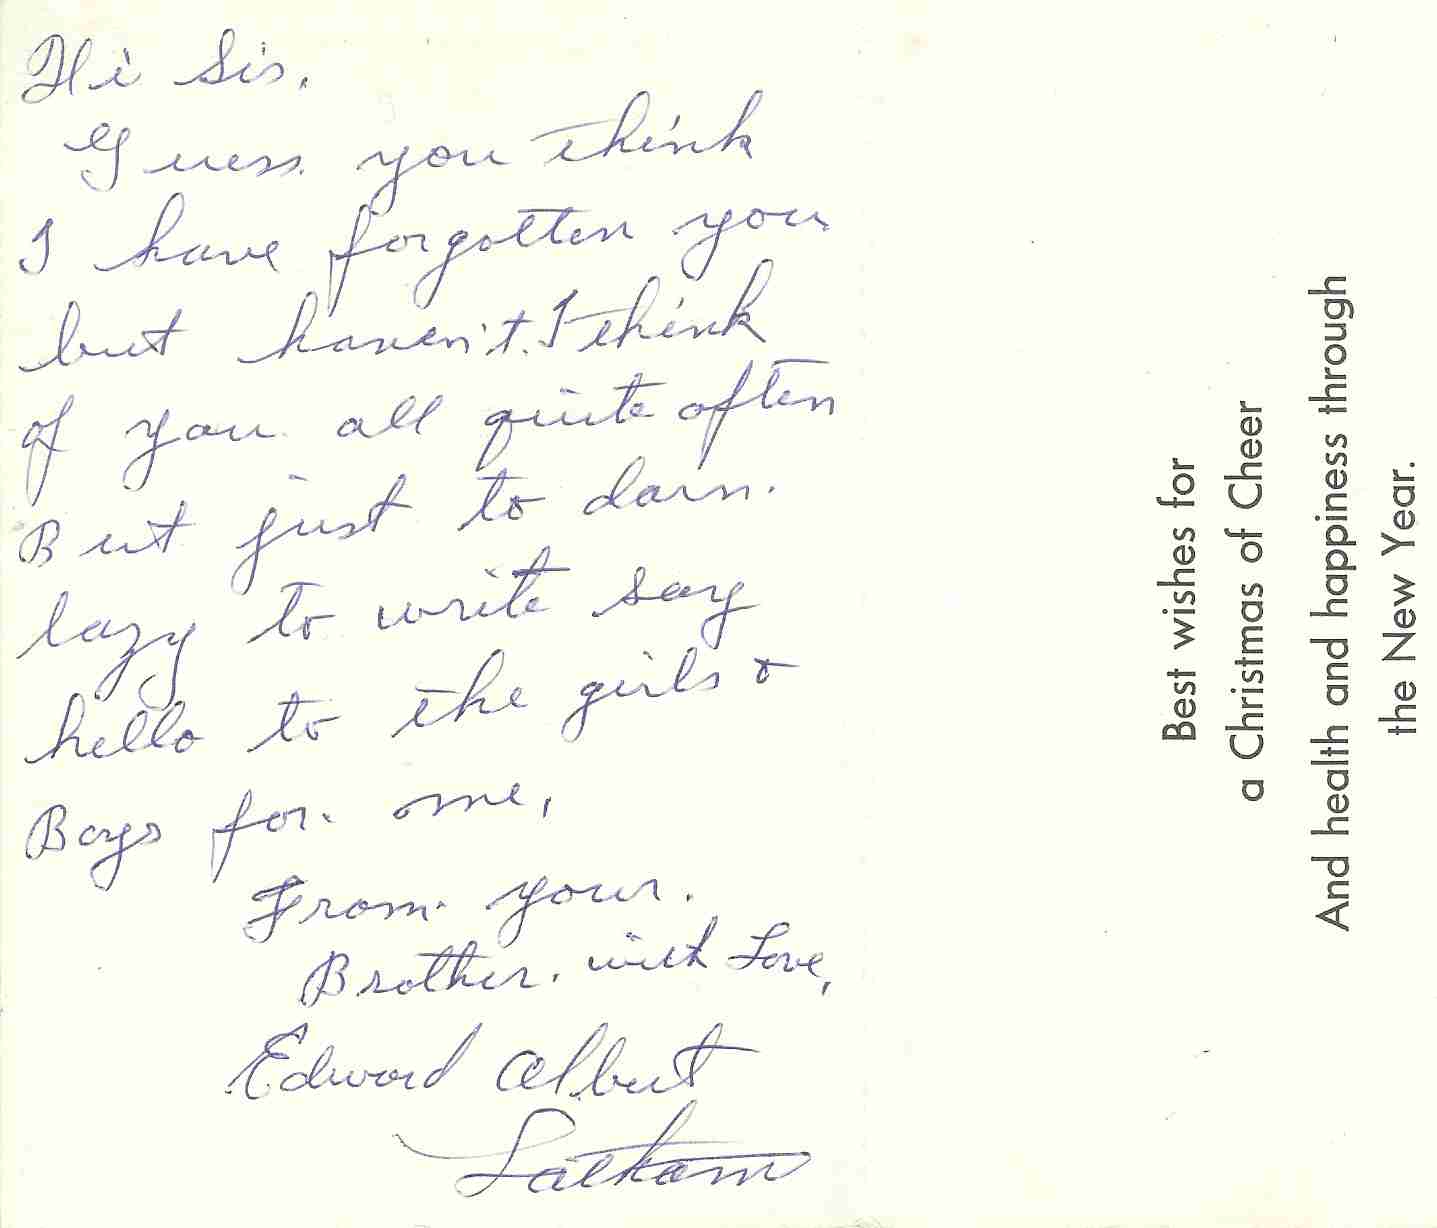 Hi Sis,
Guess you think
I have forgotten you
but haven't. I think
of you all quite often
But just to darn.
lazy to write say
hello to the girls &
Boys for me,
From your.
Brother. with Love,
Edward Albert
Latham
Best wishes for
a Christmas of Cheer
And health and happiness through
the New Year.